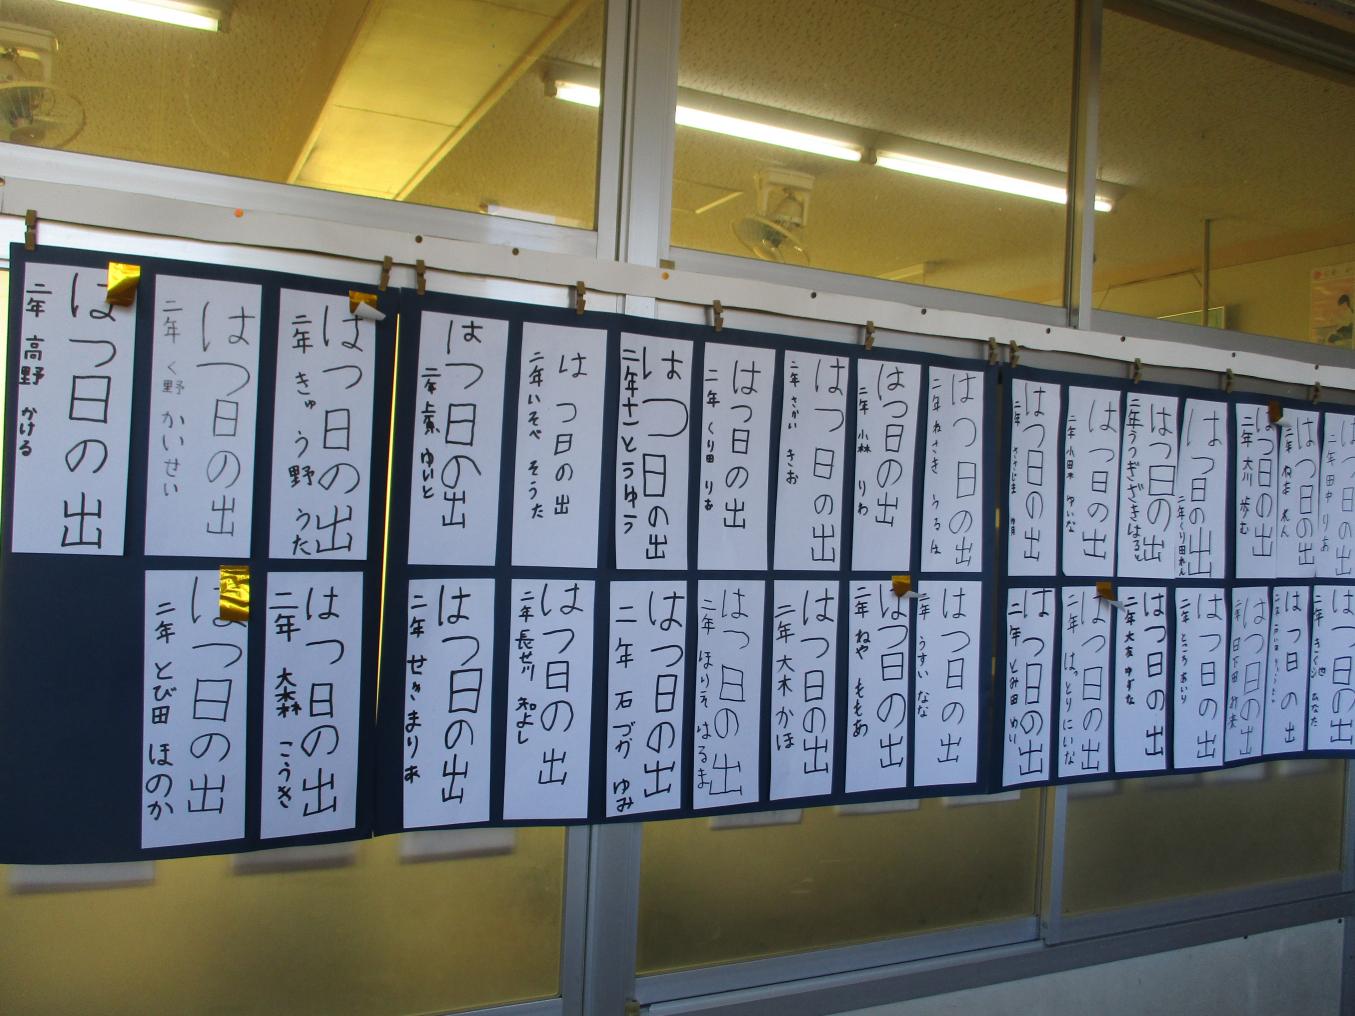 はつ日の出
二年 高野 かける
はつ日の出
二年 く野 かいせい
はつ日の出
二年 きゅう野 うた
はつ日の出
二年 ゆいと
はつ日の出
二年 いそべ そうた
はつ日の出
二年 さとうゆう
はつ日の出
二年 くり田 りお
はつ日の出
二年 さかい きお
はつ日の出
二年 小林 りわ
はつ日の出
二年 ねさき うるは
はつ日の出
二年 ささじま
はつ日の出
二年 小田木 ゆいな
はつ日の出
二年 うつぎざきはると
はつ日の出
二年 くり田れん
はつ日の出
二年 大川 歩む
はつ日の出
二年 ねま れん
はつ日の出
二年 田中 りお
はつ日の出
二年 とび田 ほのか
はつ日の出
二年 大森 こうき
はつ日の出
二年 せき まりあ
はつ日の出
二年 長谷川 和よし
はつ日の出
二年 石づか ゆみ
はつ日の出
二年 ほりえ はるま
はつ日の出
二年 大木 かほ
はつ日の出
二年 ねや ももあ
はつ日の出
二年 うすい なな
はつ日の出
二年 とみ田 ゆい
はつ日の出
二年 はっとりにいな
はつ日の出
二年 大友 ゆずな
はつ日の出
二年 ところ あいり
はつ日の出
二年 日下田
はつ日の出
はつ日の出
二年 きく池 ひなた